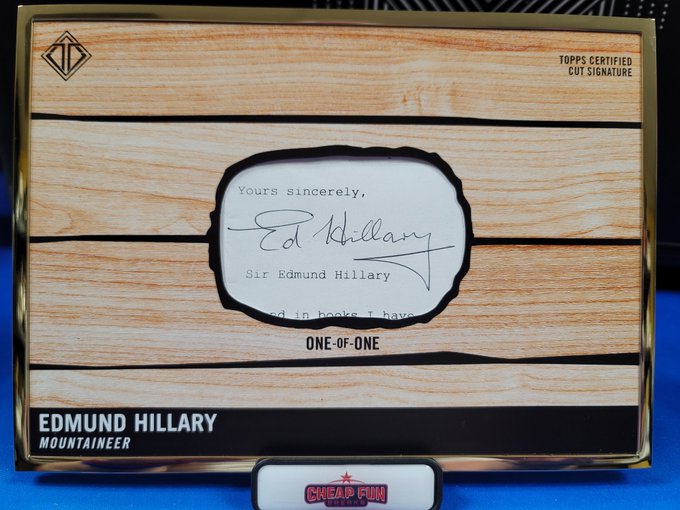 TOPPS CERTIFIED
CUT SIGNATURE
Yours sincerely,
Ed Hillary
Sir Edmund Hillary
ed in books I have
ONE-OF-ONE
EDMUND HILLARY
MOUNTAINEER
CHEAP FUN
BREAKS